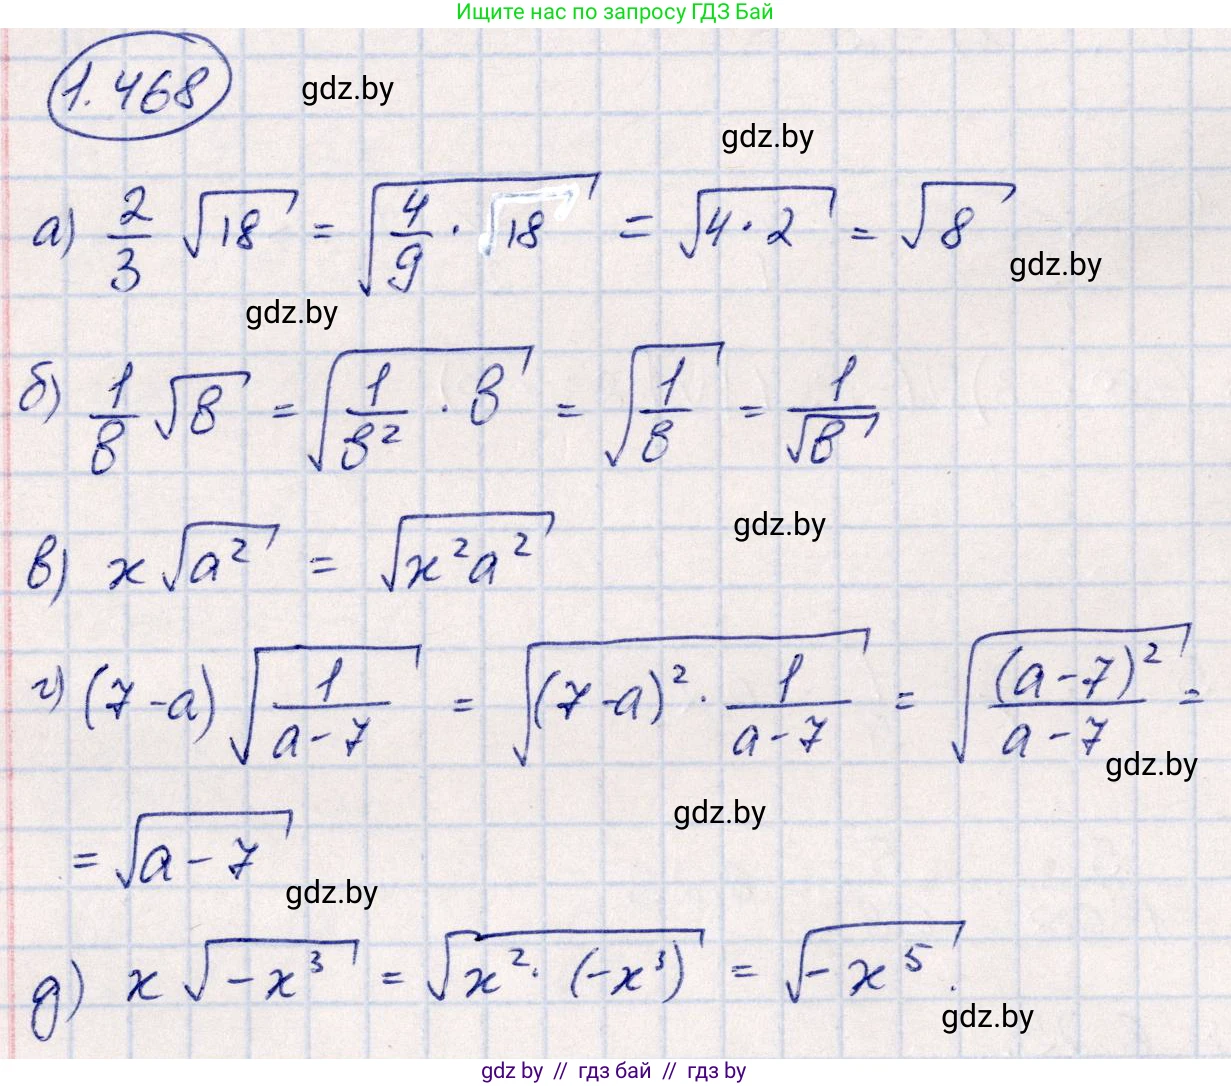 Ищите нас по запросу ГДЗ Бай
1.468
gdz.by
gdz.by
а) 2/3 √18 = √(4/9 · √18) = √(4·2) = √8
gdz.by
gdz.by
б) 1/8 √8 = √(1/8² · 8) = √(1/8) = 1/√8
gdz.by
в) x√a² = √(x²a²)
г) (7-a) √(1/(a-7)) = √((7-a)² · 1/(a-7)) = √((a-7)²/(a-7)) =
gdz.by
gdz.by
= √(a-7)
gdz.by
д) x √(-x³) = √(x² · (-x³)) = √(-x⁵).
gdz.by
gdz by // гдз бай // гдз by